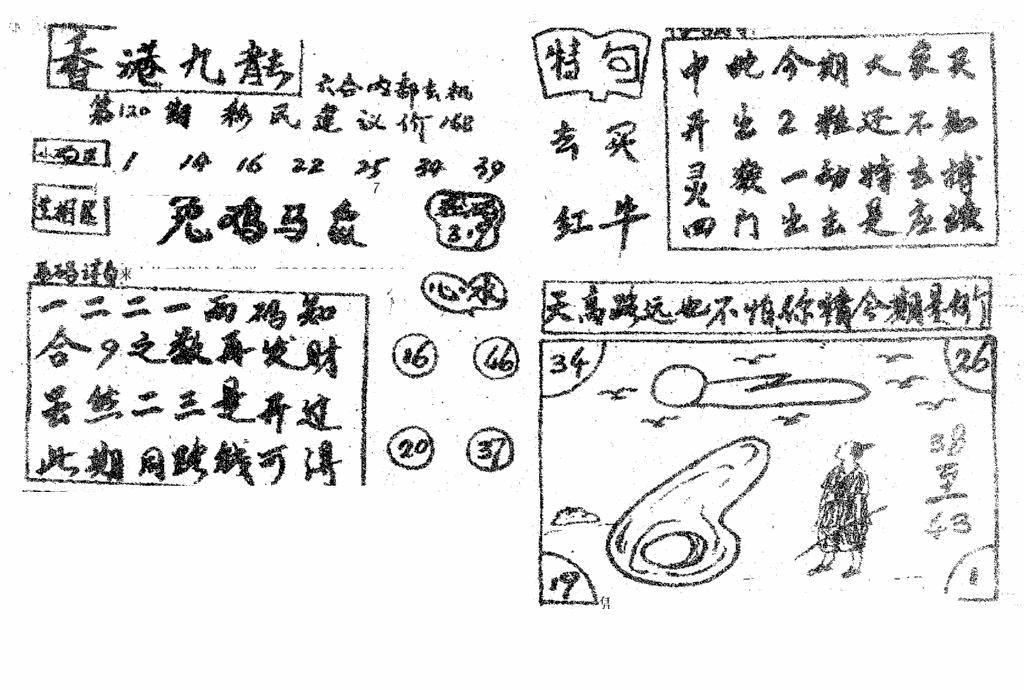 香港九龍
六合内部玄机
第120期 移民建议价168
1 14 16 22 25 34 39
7
兔鸡马
3.19
来
一二二一两码知
合9之数再发财
虽然二三是开过
此期同踪钱可得
心水
16 46
20 37
特句
去买
红牛
中地今期大家买
开出2粒还不知
灵机一动特去搏
四门出去是应
天高路远也不怕你精今期是
34 26
38
至
43
19 1